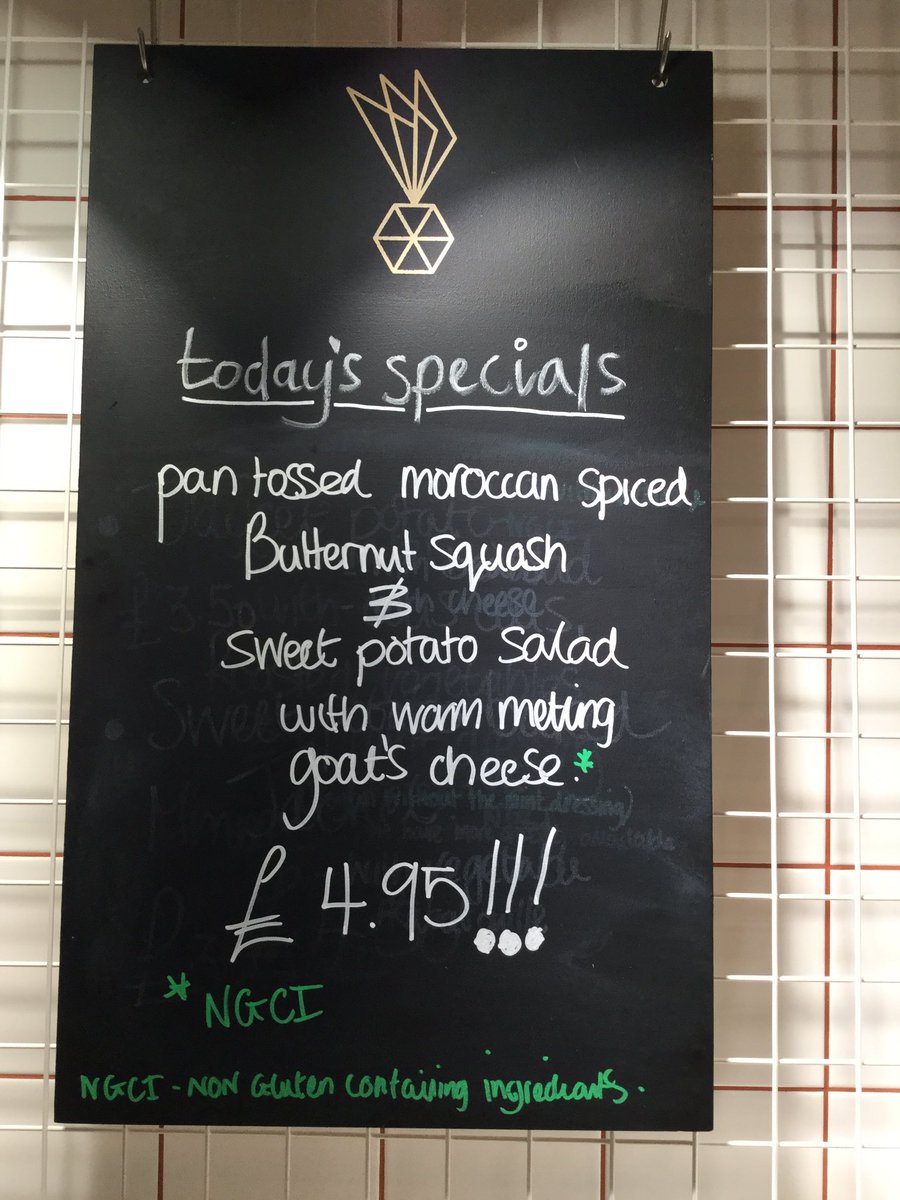 today's specials
pan tossed moroccan spiced
Butternut squash
&
sweet potato salad
with warm melting
goat's cheese.*
£4.95!!!
* NGCI
NGCI - NON Gluten containing ingredients.